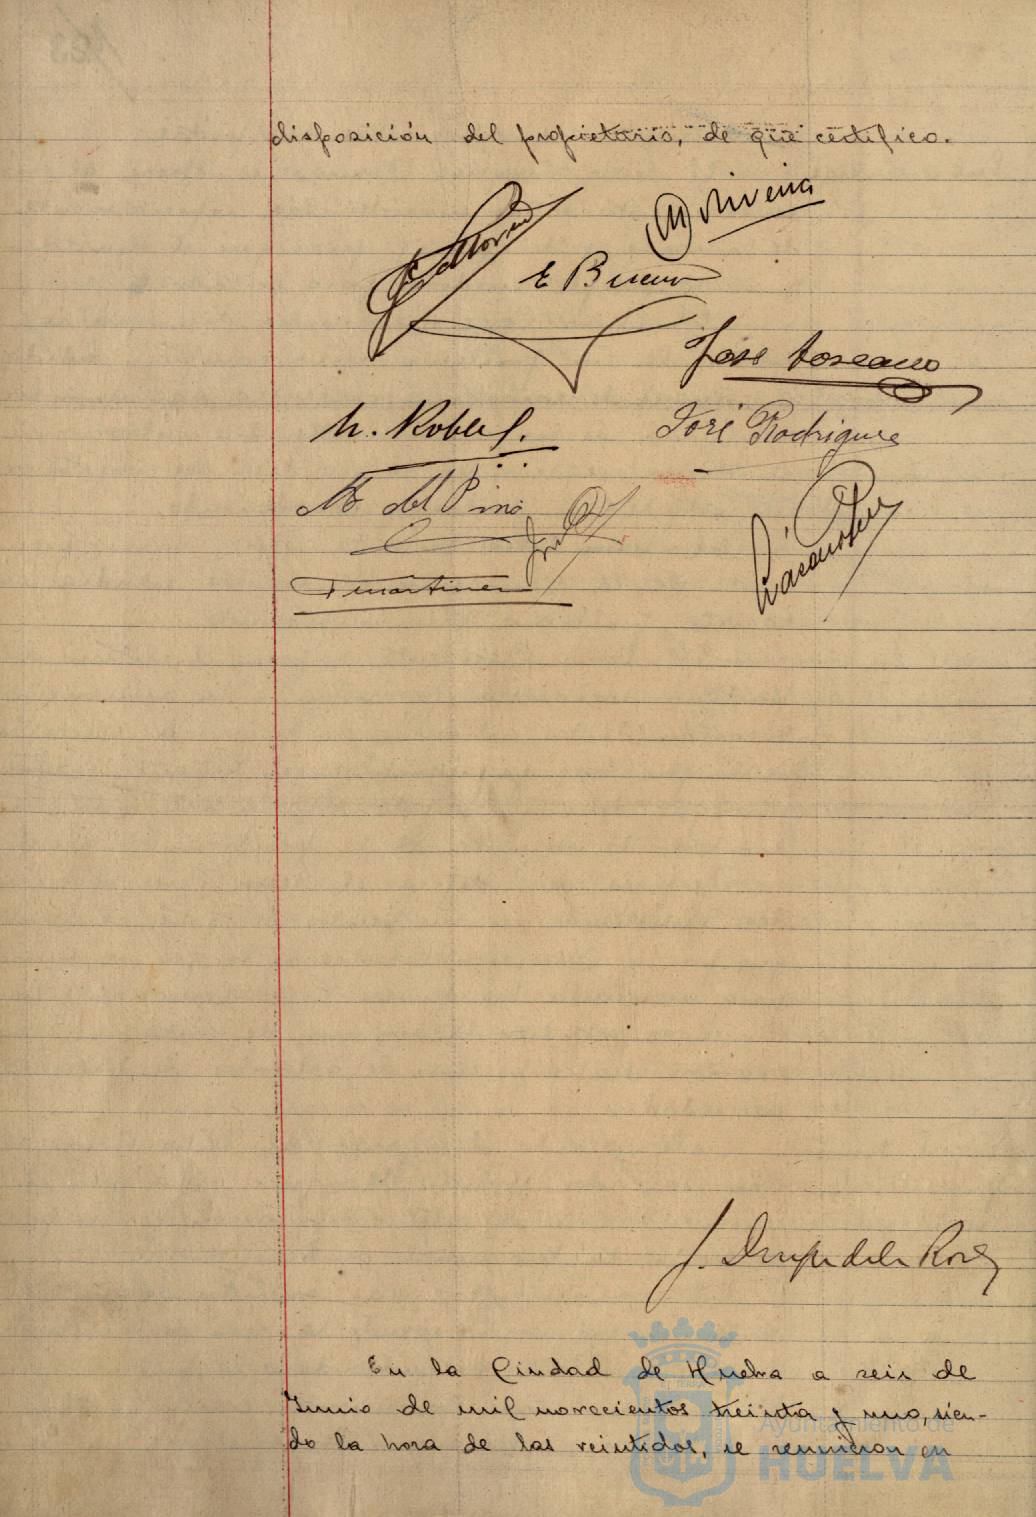 disposición del propietario, de que certifico.
E Bueno
José Toscano
José Rodríguez
M. del Pino
F Martinez
En la Ciudad de Huelva a seis de
Junio de mil novecientos treinta y uno, sien-
do la hora de las veintidos, se reunieron en
Ayuntamiento de
HUELVA